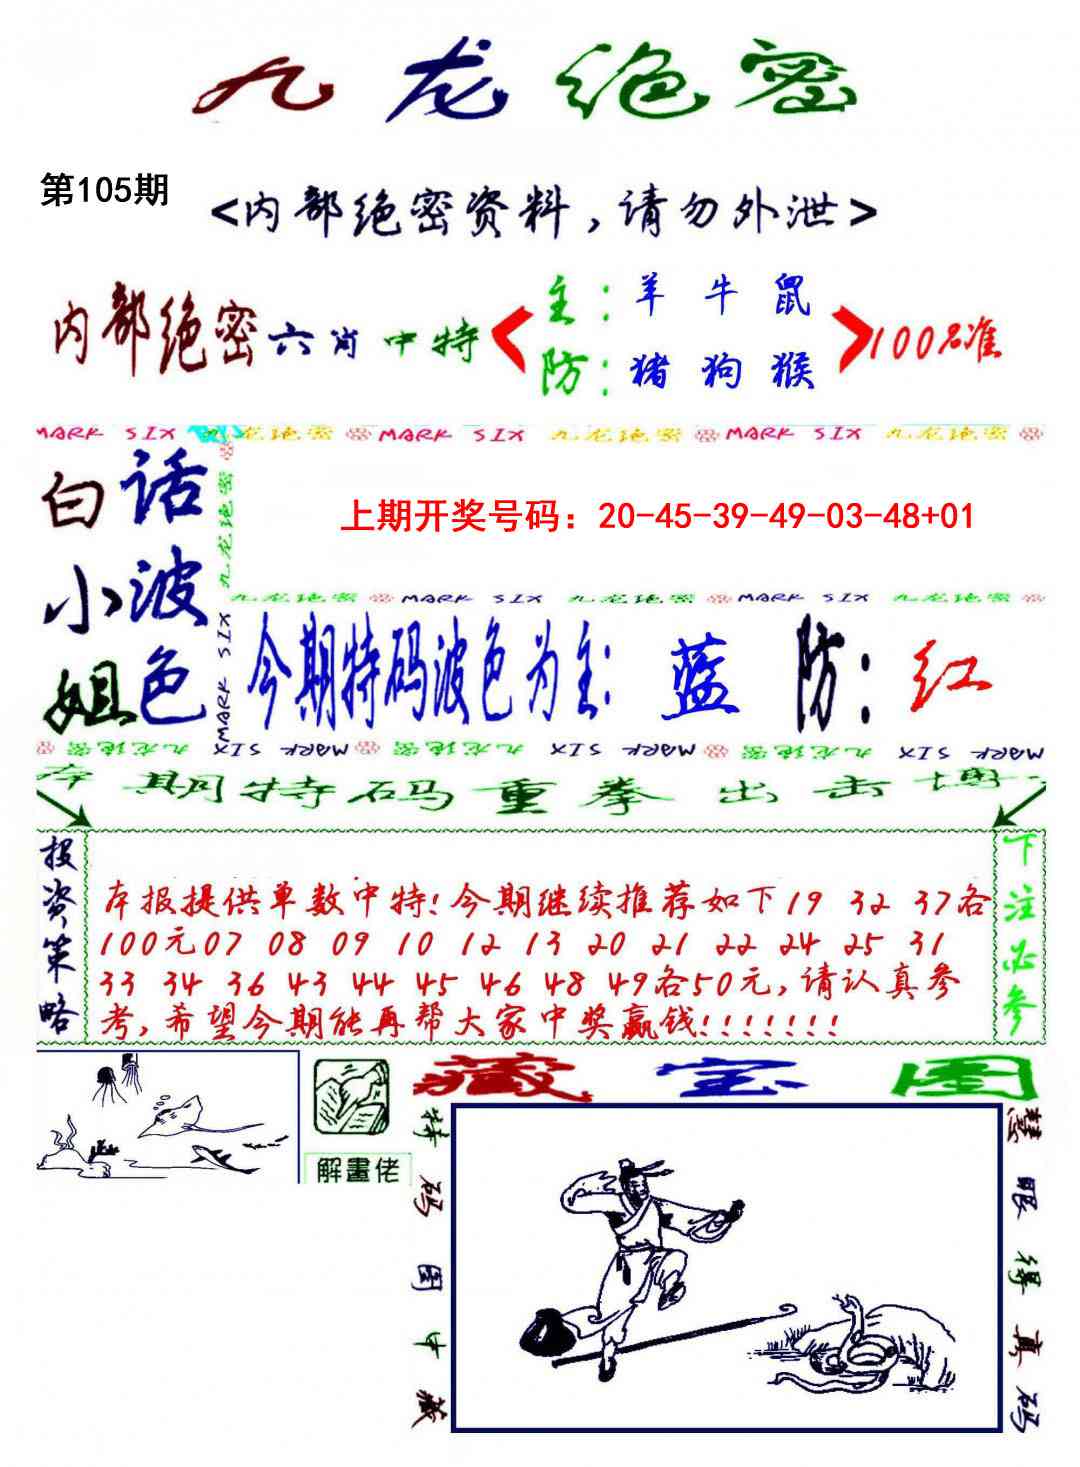 九龙绝密
第105期
<内部绝密资料,请勿外泄>
内部绝密六肖中特
主:羊 牛 鼠
防:猪 狗 猴
100%准
MARK SIX 九龙绝密 MARK SIX 九龙绝密 MARK SIX 九龙绝密
白话小波姐色
九龙绝密 MARK SIX
上期开奖号码：20-45-39-49-03-48+01
九龙绝密 MARK SIX 九龙绝密 MARK SIX 九龙绝密
今期特码波色为主: 蓝 防: 红
九龙绝密 MARK SIX 九龙绝密 MARK SIX 九龙绝密 MARK SIX
本期特码重拳出击博
投资策略
本报提供单数中特!今期继续推荐如下19 32 37各
100元07 08 09 10 12 13 20 21 22 24 25 31
33 34 36 43 44 45 46 48 49各50元,请认真参
考,希望今期能再帮大家中奖赢钱!!!!!!!
下注必参
解畫佬
藏宝图
特码图中藏
慧眼得真码